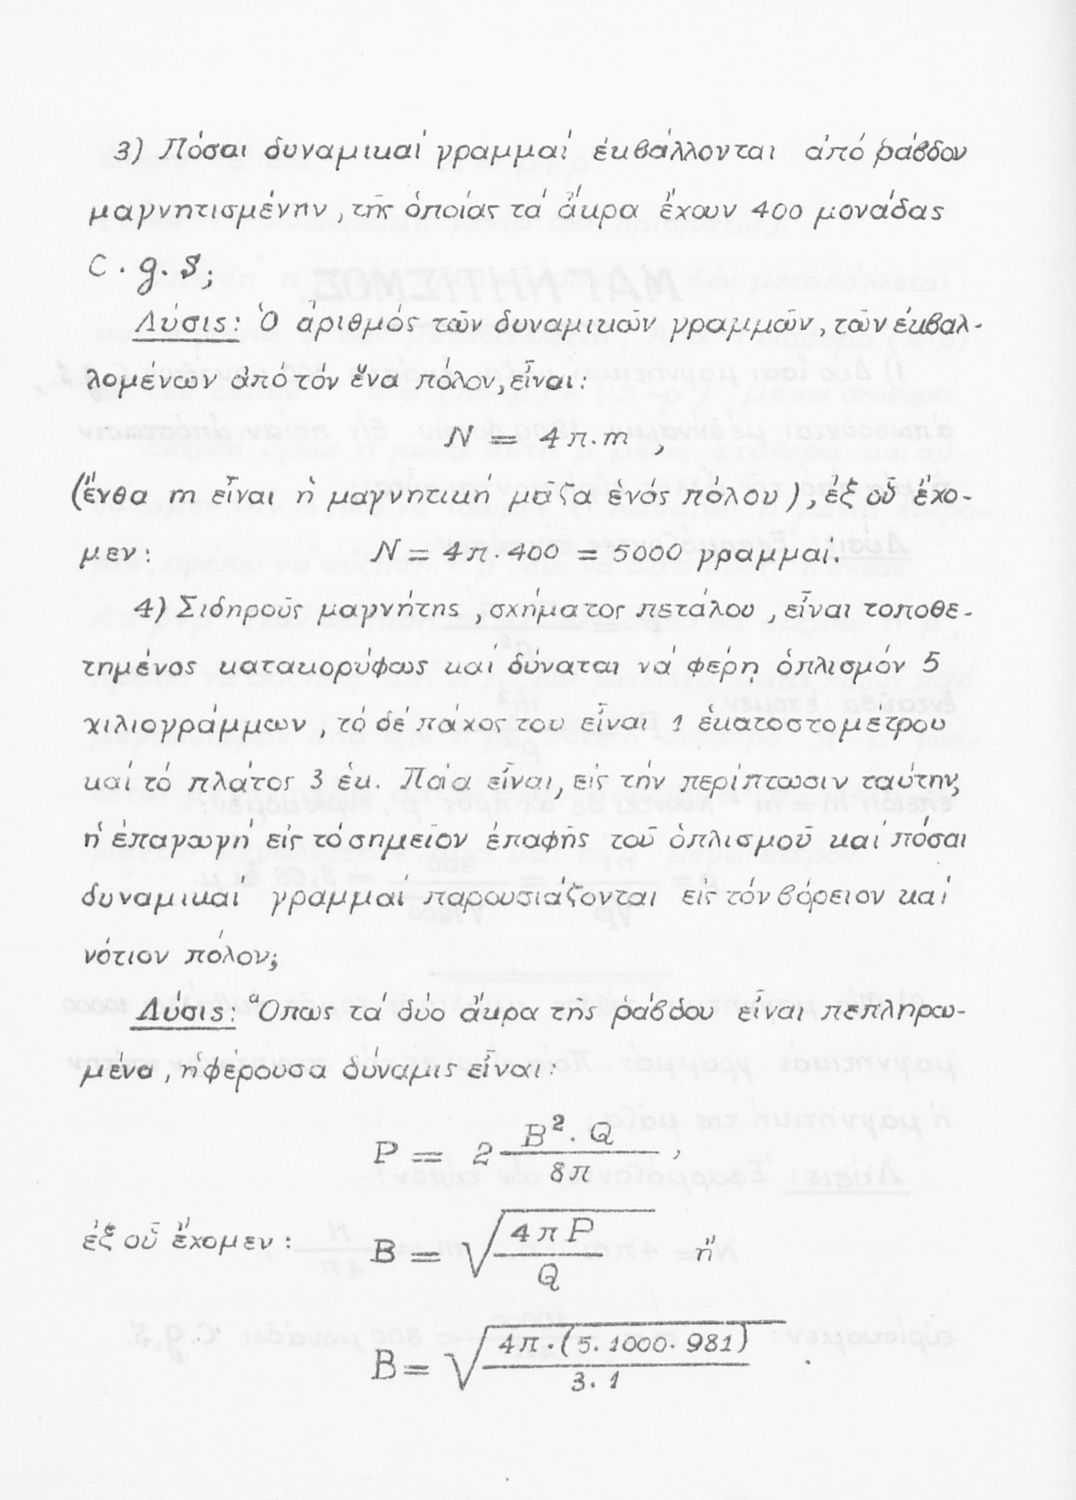 3) Πόσαι δυναμικαί γραμμαί ἐκβάλλονται ἀπό ράβδον
μαγνητισμένην, τῆς ὁποίας τά ἄκρα ἔχουν 400 μονάδας
C.g.S;
Λύσις: Ὁ ἀριθμός τῶν δυναμικῶν γραμμῶν, τῶν ἐκβαλ-
λομένων ἀπό τόν ἕνα πόλον, εἶναι:
N = 4π.m ,
(ἔνθα m εἶναι ἡ μαγνητική μᾶζα ἑνός πόλου), ἐξ οὗ ἔχο-
μεν: N = 4π.400 = 5000 γραμμαί.
4) Σιδηροῦς μαγνήτης, σχήματος πετάλου, εἶναι τοποθε-
τημένος κατακορύφως καί δύναται νά φέρῃ ὁπλισμόν 5
χιλιογράμμων, τό δέ πάχος του εἶναι 1 ἑκατοστομέτρου
καί τό πλάτος 3 ἑκ. Ποία εἶναι, εἰς τήν περίπτωσιν ταύτην,
ἡ ἐπαγωγή εἰς τό σημεῖον ἐπαφῆς τοῦ ὁπλισμοῦ καί πόσαι
δυναμικαί γραμμαί παρουσιάζονται εἰς τόν βόρειον καί
νότιον πόλον;
Λύσις: Ὅπως τά δύο ἄκρα τῆς ράβδου εἶναι πεπληρω-
μένα, ἡ φέρουσα δύναμις εἶναι:
P = 2 B². Q / 8π ,
ἐξ οὗ ἔχομεν: B = √ 4πP / Q ἤ
B = √ 4π.(5.1000.981) / 3.1 .